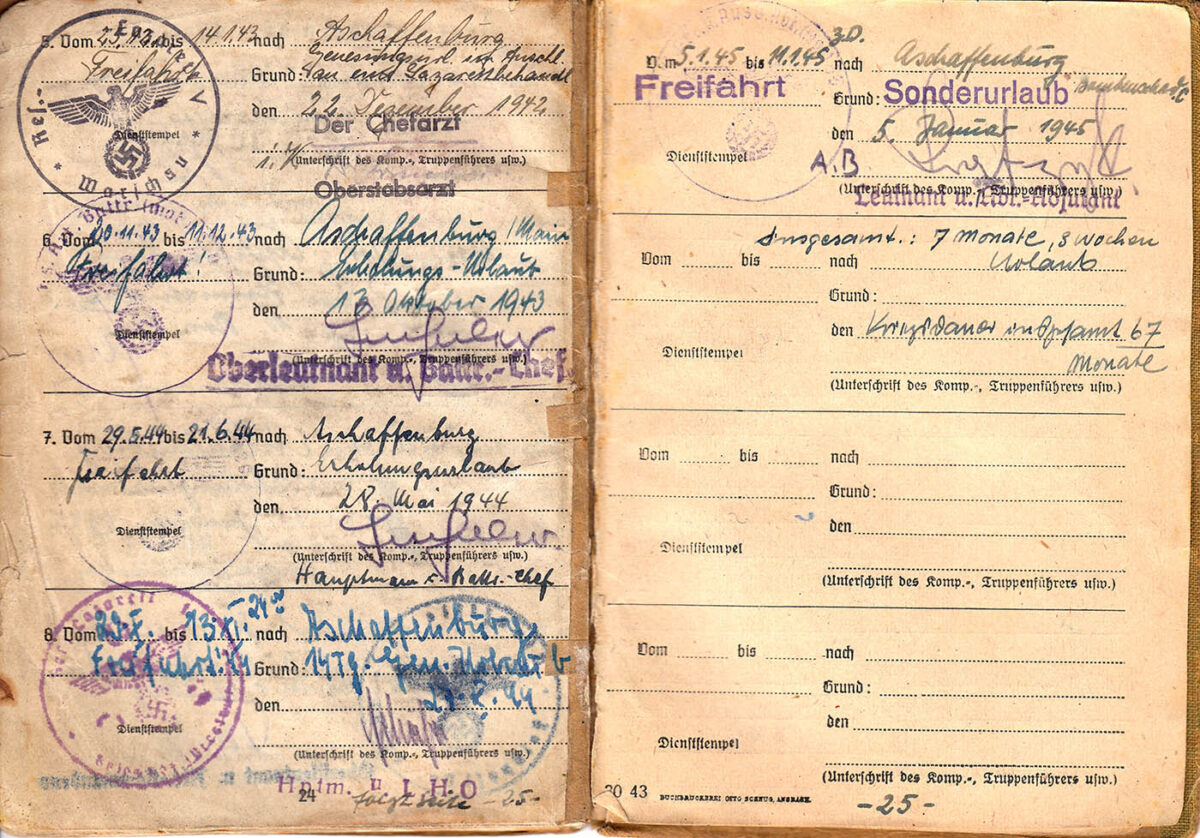 5. Vom 23.12. bis 14.1.43 nach Aschaffenburg
Freifahrt
Grund: Genesungsurl. im Anschl.
an Lazarettbehandl.
den 22. Dezember 1942
Der Chefarzt
Dienststempel
(Unterschrift des Komp.-, Truppenführers usw.)
Oberstabsarzt
Res.-
V
Warschau
6. Vom 20.11.43 bis 11.12.43 nach Aschaffenburg/Main
Freifahrt!
Grund: Erholungs-Urlaub
den 13 Oktober 1943
Dienststempel
(Unterschrift des Komp.-, Truppenführers usw.)
Oberleutnant u. Battr.-Chef.
7. Vom 29.5.44 bis 21.6.44 nach Aschaffenburg
Freifahrt
Grund: Erholungsurlaub
den 28. Mai 1944
Dienststempel
(Unterschrift des Komp.-, Truppenführers usw.)
Hauptmann u. Battr.-Chef
8. Vom bis 13.XI. 24°° nach Aschaffenburg
Freifahrt!
Grund: 14 Tg. Gen. Urlaub
den
Dienststempel
(Unterschrift des Komp.-, Truppenführers usw.)
Hptm. u. LHO
24
folgt Seite -25-
Vom 5.1.45 bis 11.1.45 nach Aschaffenburg
Freifahrt
Grund: Sonderurlaub
den 5. Januar 1945
Dienststempel
A.B
(Unterschrift des Komp.-, Truppenführers usw.)
Leutnant u. Abt.-Adjutant
Insgesamt.: 7 Monate, 3 Wochen
Vom bis nach Urlaub
Grund:
den Kriegsdauer insgesamt 67
Monate
Dienststempel
(Unterschrift des Komp.-, Truppenführers usw.)
Vom bis nach
Grund:
den
Dienststempel
(Unterschrift des Komp.-, Truppenführers usw.)
Vom bis nach
Grund:
den
Dienststempel
(Unterschrift des Komp.-, Truppenführers usw.)
43 BUCHDRUCKEREI OTTO SCHNUG, ANSBACH.
-25-